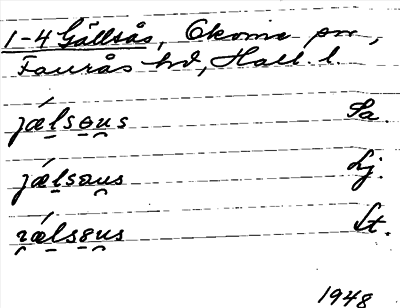 1-4 Gällsås, Okome sn,
Faurås hd, Hall. l.
jǽlsɵu̯s Sa.
jǽlsau̯s Lj.
rǽlsɛu̯s St.
1948